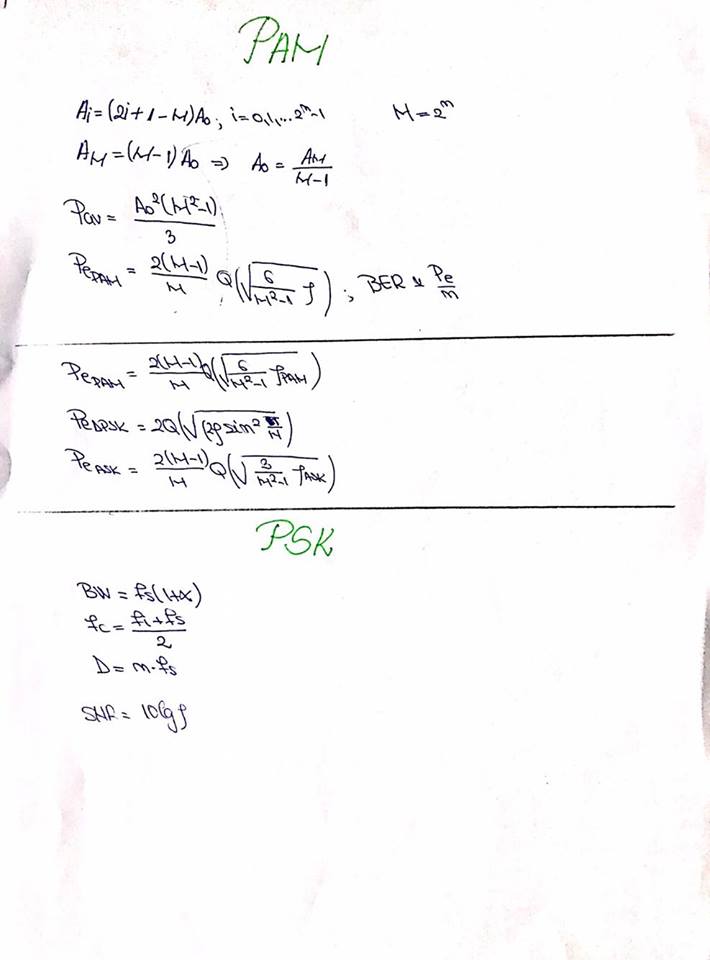 PAM
Ai=(2i+1-M)A₀; i=0,1,...2ᵐ-1 M=2ᵐ
A_M=(M-1)A₀ ⇒ A₀ = A_M/(M-1)
Pav = A₀²(M²-1)/3
Pe_PAM = 2(M-1)/M Q(√(6/(M²-1) ρ)); BER ≈ Pe/m
Pe_PAM = 2(M-1)/M Q(√(6/(M²-1) ρ_PAM))
Pe = 2Q(√(2ρ sin² π/M))
Pe_ASK = 2(M-1)/M Q(√(3/(M²-1) ρ_ASK))
PSK
BW = fs(1+α)
fc = (fi+fs)/2
D = m·fs
SNR = 10lgρ